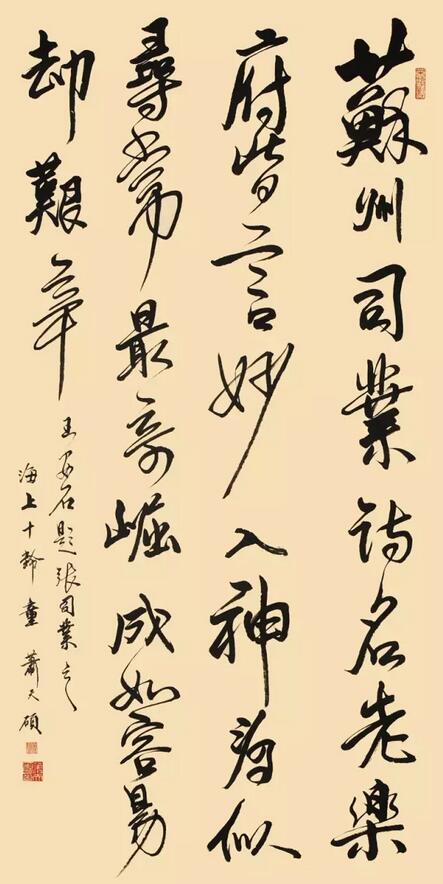 蘇州司業詩名老樂
府皆言妙入神看似
尋常最奇崛成如容易
却艱辛
王安石題張司業之
海上十齡童蕭天碩